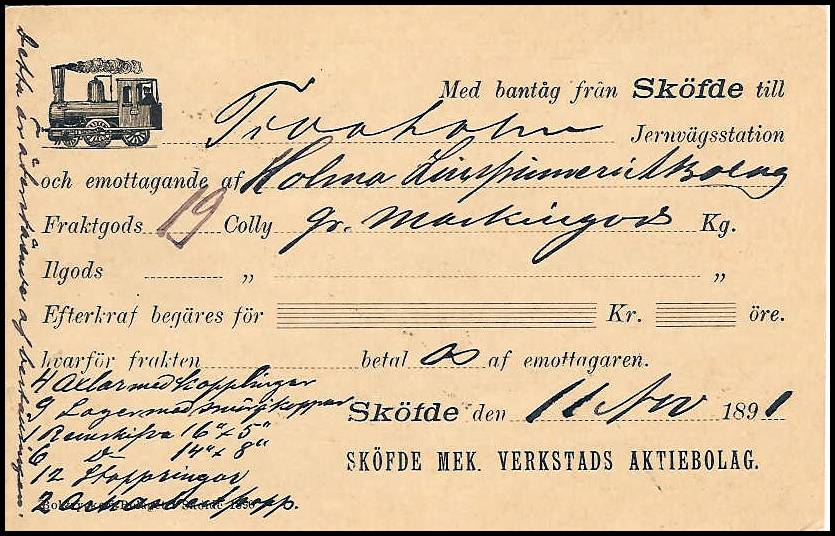 Med bantåg från Sköfde till
Jernvägsstation
och emottagande af Holma Linspinneri Aktbolag
Fraktgods 19 Colly gr. Maskingods Kg.
Ilgods „ „
Efterkraf begäres för Kr. öre.
hvarför frakten betal as af emottagaren.
4 Axlar med kopplingar
9 Lager med smörjkoppar
1 Remskifva 16" x 5"
6 D 14" x 8"
12 Stoppringar
2
Sköfde den 11 Nov 1891
SKÖFDE MEK. VERKSTADS AKTIEBOLAG.
Sköfde 1890
Detta är återstående af beställningen.